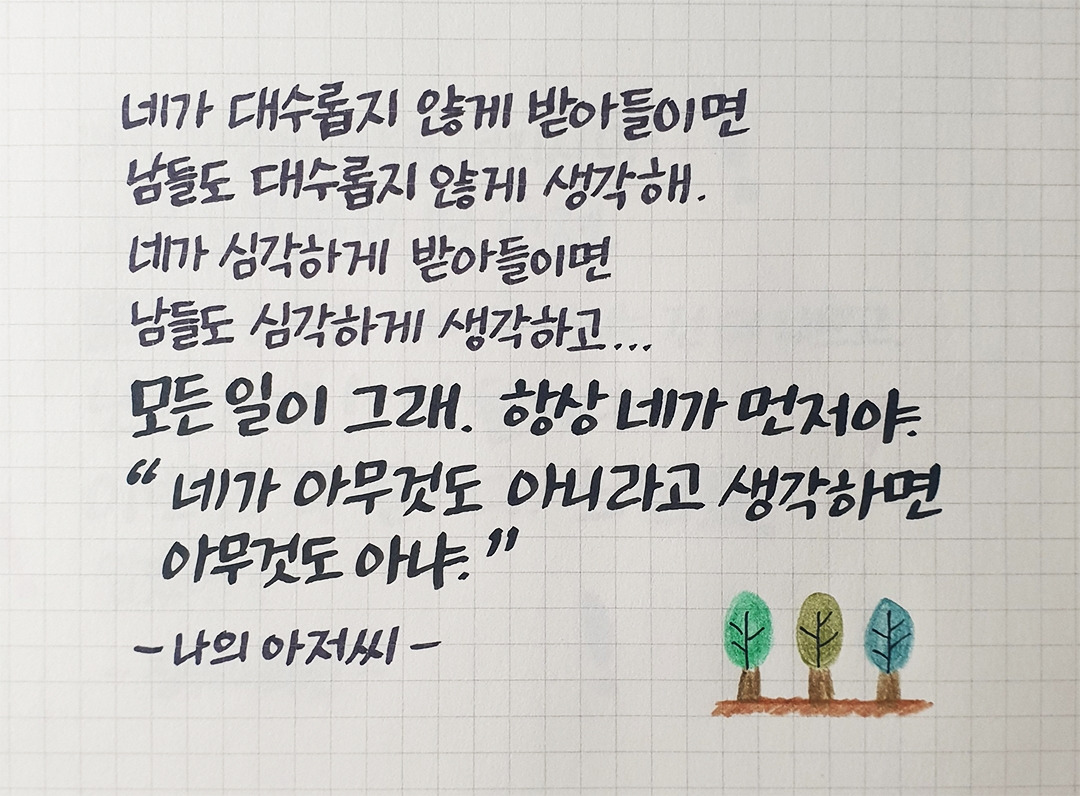 네가 대수롭지 않게 받아들이면
남들도 대수롭지 않게 생각해.
네가 심각하게 받아들이면
남들도 심각하게 생각하고...
모든 일이 그래. 항상 네가 먼저야.
“네가 아무것도 아니라고 생각하면
아무것도 아냐.”
-나의 아저씨-